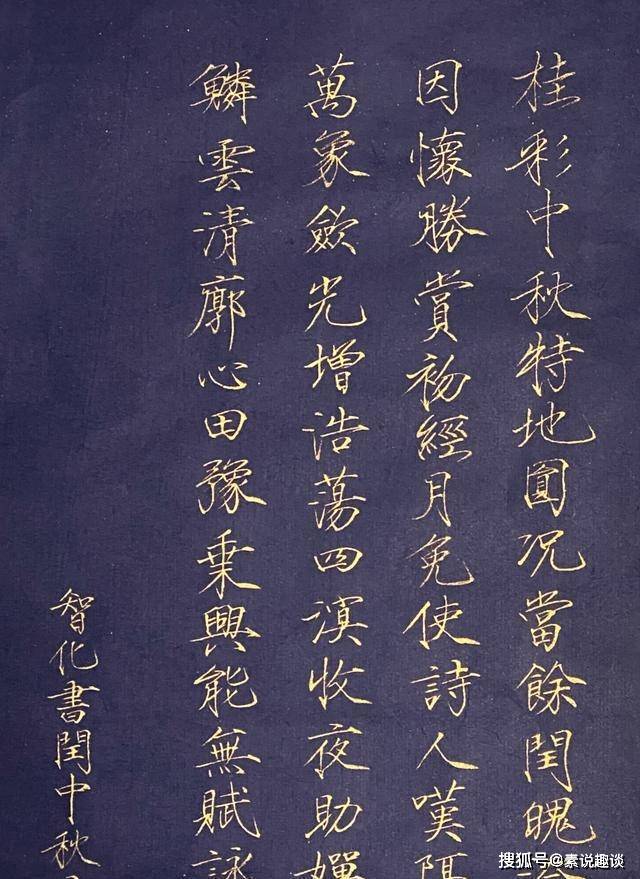 桂彩中秋特地圓況當餘閏魄
因懷勝賞初經月免使詩人嘆隔
萬象歛光增浩蕩四溟收夜助嬋
鱗雲清廓心田豫乘興能無賦詠
智化書閏中秋
搜狐号@素说趣谈